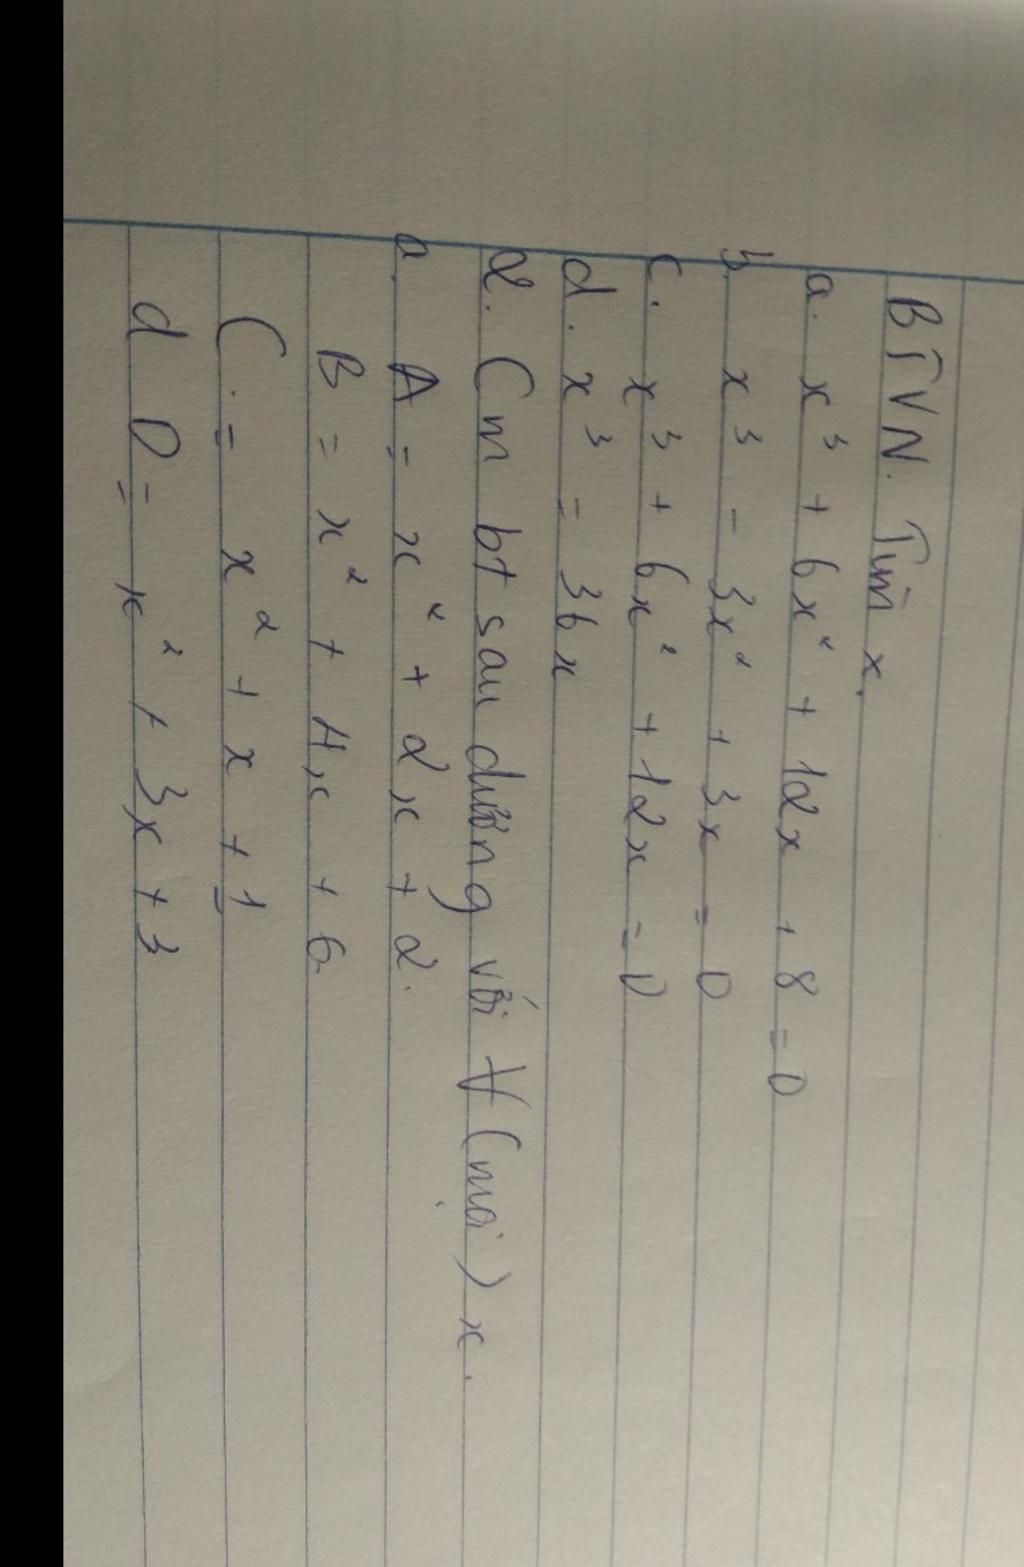 BTVN. Tìm x.
a. x³ + 6x² + 12x + 8 = 0
b. x³ - 3x² + 3x = 0
c. x³ + 6x² + 12x = 0
d. x³ = 36x
2. Cm bt sau dương với ∀ (mọi) x.
a. A = x² + 2x + 2.
B = x² + 4x + 6
C. = x² + x + 1
d D = x² + 3x + 3